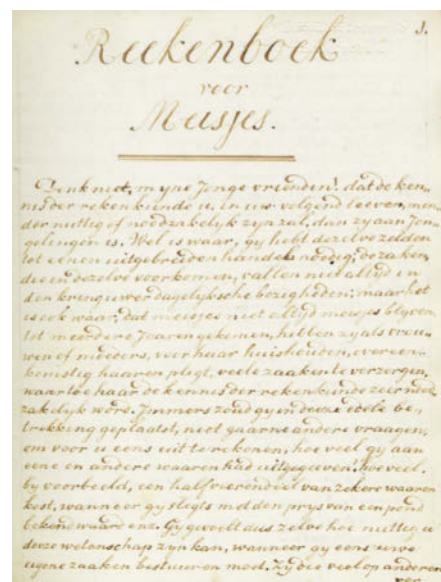 1.
Reekenboek
voor
Meisjes.
Denk niet, myne Jonge vrienden! dat de ken„
nis der rekenkunde u, in uw volgend leeven, min„
der nuttig of noodzakelyk zyn zal, dan zy aan Jon„
gelingen is. Wel is waar, gy hebt dezelve zelden
tot eenen uitgebreiden handel noodig; de zaken,
die in dezelve voorkomen, vallen niet altijd in
den kring uwer dagelyksche bezigheden; maar het
is ook waar, dat meisjes niet altijd meisjes blyven
tot meerdere Jaaren gekomen, hebben zy als vrou„
wen of moeders, voor haar huishouden, overeen„
komstig haaren pligt, veele zaaken te verzorgen,
waartoe haar de kennis der rekenkunde zeer nood„
zakelyk word. Immers zoud gy in deeze edele be„
trekking geplaatst, niet gaarne andere vraagen,
om voor u eens uit te rekenen, hoe veel gy aan
eene en andere waaren had uitgegeven, hoe veel,
by voorbeeld, een half vierendeel van zekere waaren
kost, wanneer gy slegts met den prys van een pond
bekend waard enz. Gy gevoelt dus zelve hoe nuttig u
deeze wetenschap zyn kan, wanneer gy eens uwe
eigene zaaken bestuuren moet. Zy die veel op anderen
ver